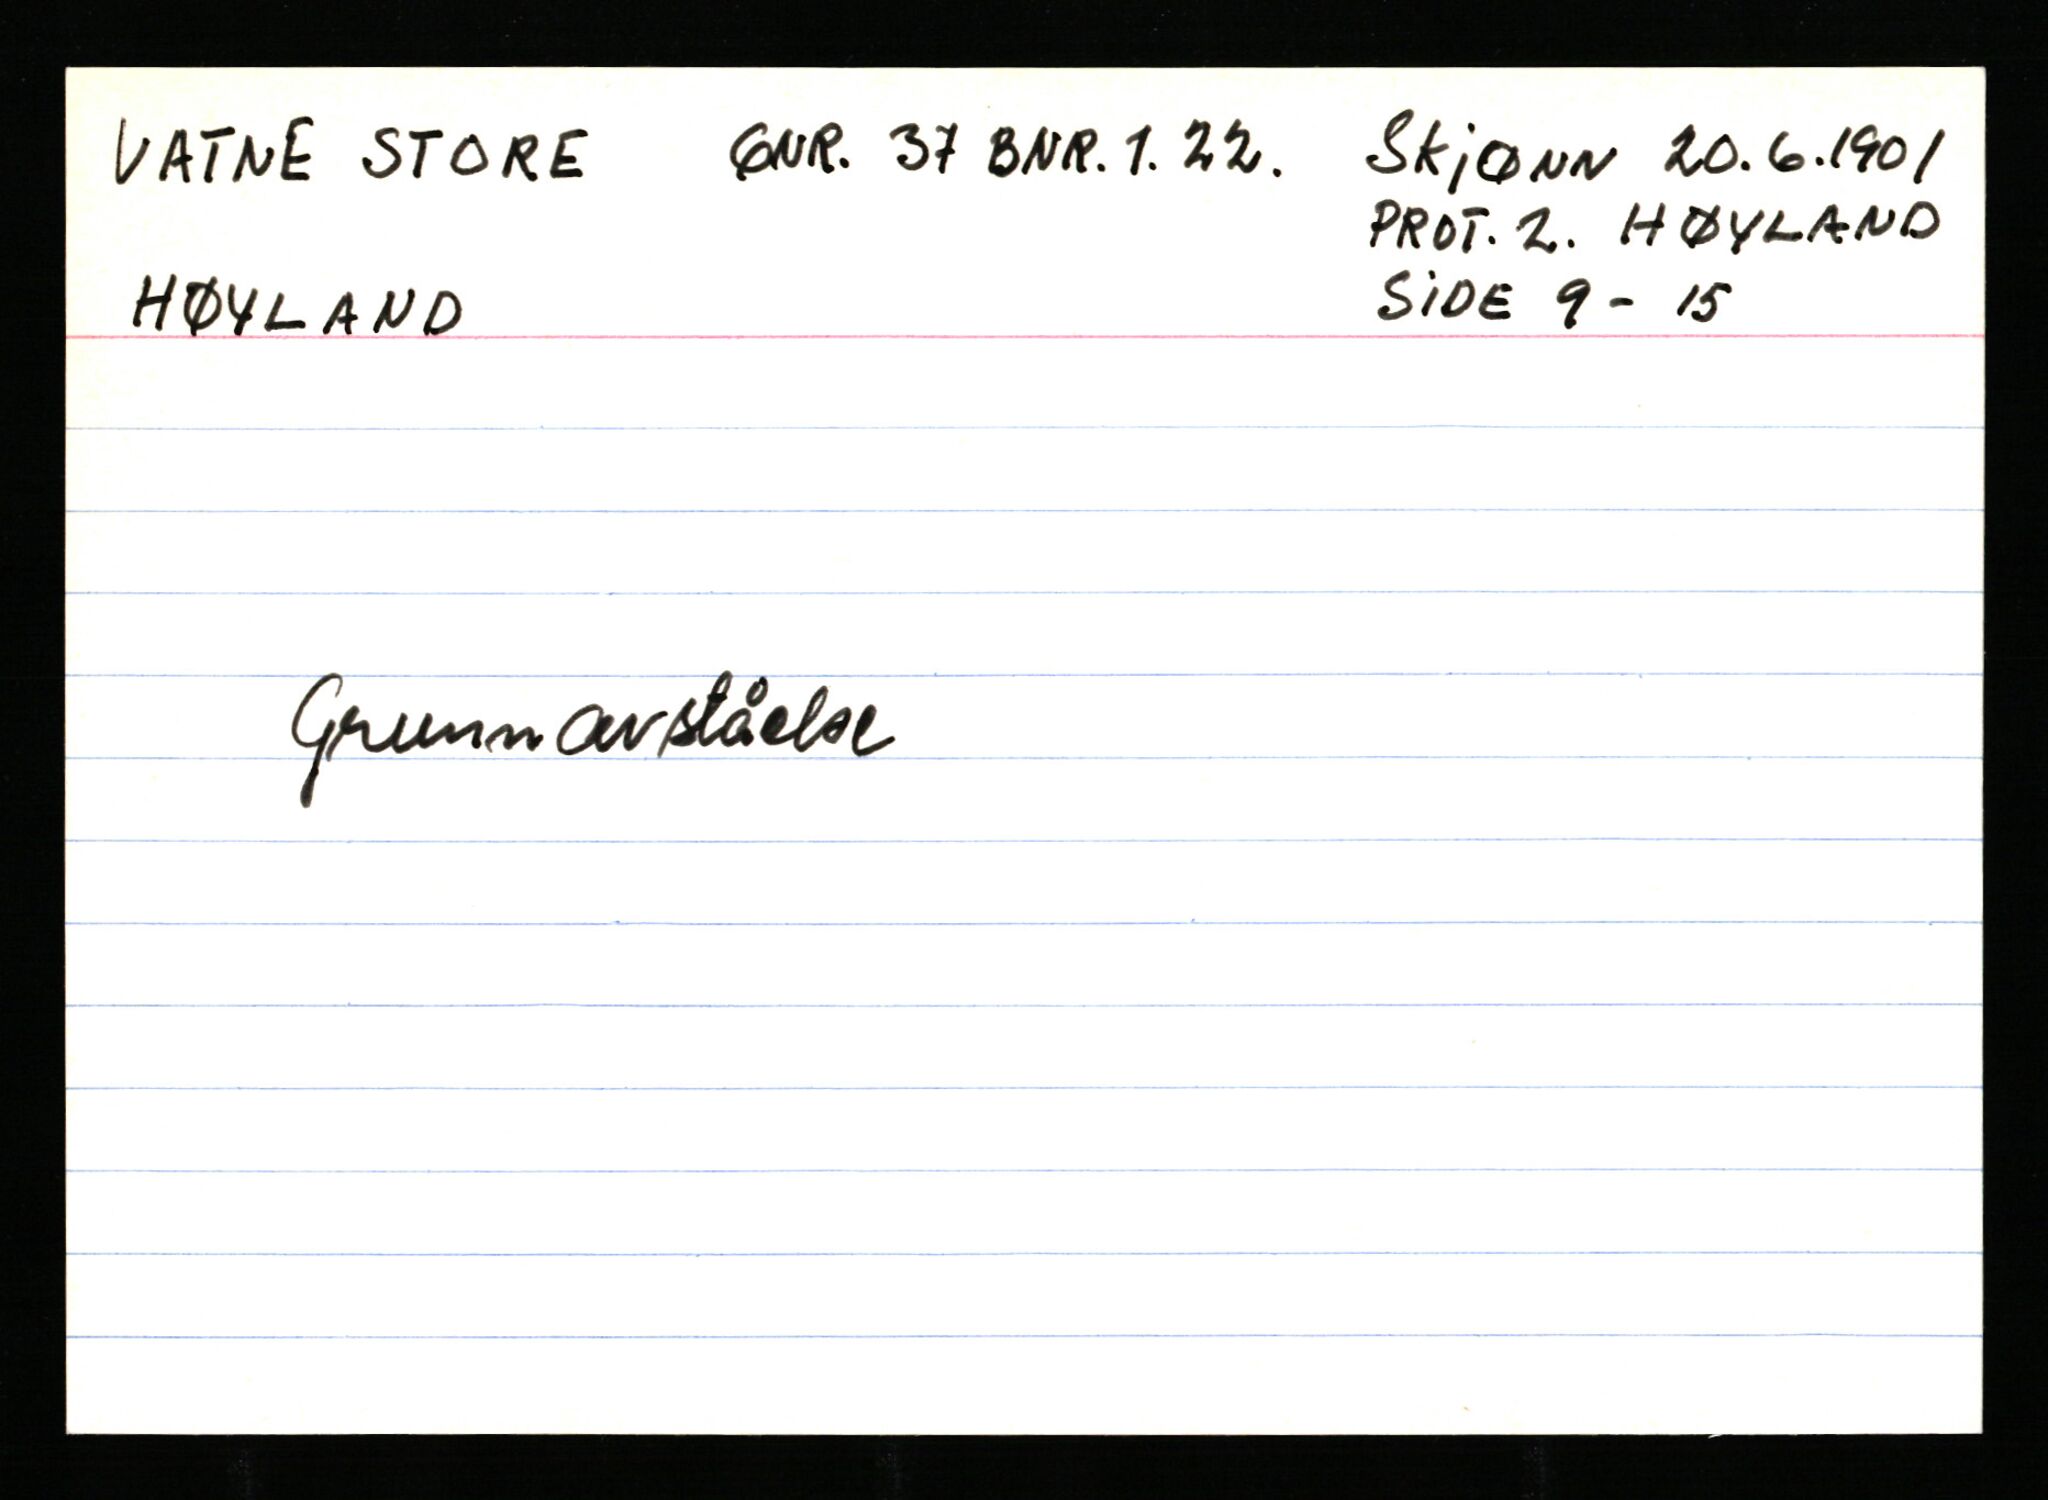 VATNE STORE GNR. 37 BNR. 1. 22. Skjønn 20.6.1901
PROT. 2. HØYLAND
HØYLAND SIDE 9 - 15
Grunnavståelse